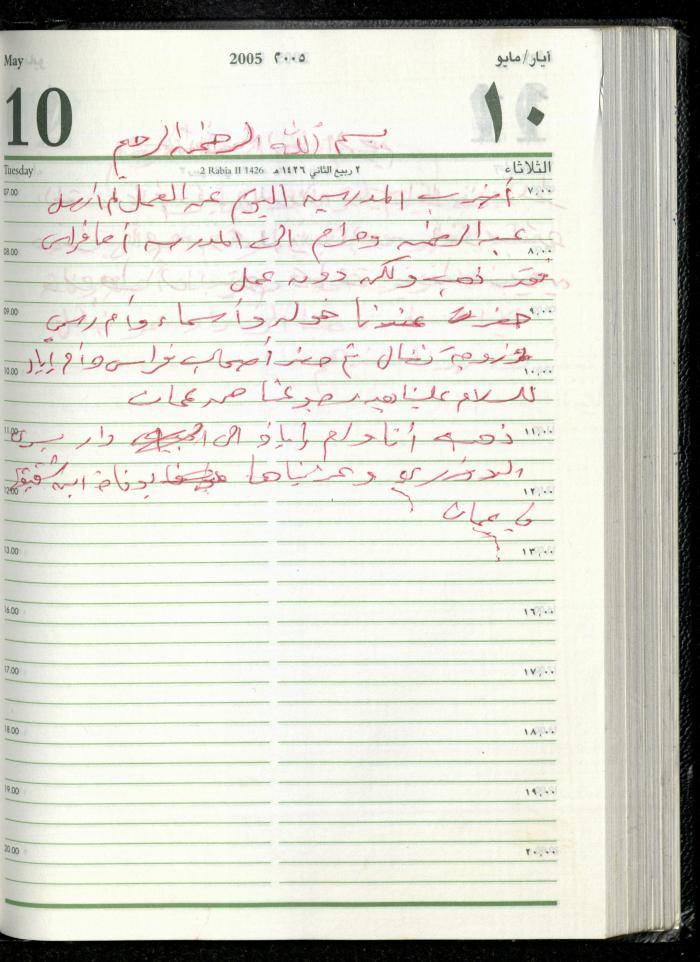 May 2005 ٢٠٠٥ أيار/مايو
10 ١٠
بسم الله الرحمن الرحيم
Tuesday 2 Rabia II 1426 ٢ ربيع الثاني ١٤٢٦ هـ الثلاثاء
07.00 أضرب المدرسين اليوم عن العمل لم أرسل ٧,٠٠
08.00 عبد الرحمن ومرام الى المدرسة أما فراس ٨,٠٠
فقد ذهب ولكن دون عمل
09.00 حضرت عندنا خوله وأسماء وأم ٩,٠٠
10.00 وزوجة نضال ثم حضر أصحاب فراس وأم إياد ١٠,٠٠
للسلام علينا بعد رجوعنا من عمان
11.00 ذهبت أنا وأم إياد الى دار ١١,٠٠
12.00 وعزيناها بوفاة ابن شقيقها ١٢,٠٠
في عمان
13.00 ١٣,٠٠
16.00 ١٦,٠٠
17.00 ١٧,٠٠
18.00 ١٨,٠٠
19.00 ١٩,٠٠
20.00 ٢٠,٠٠